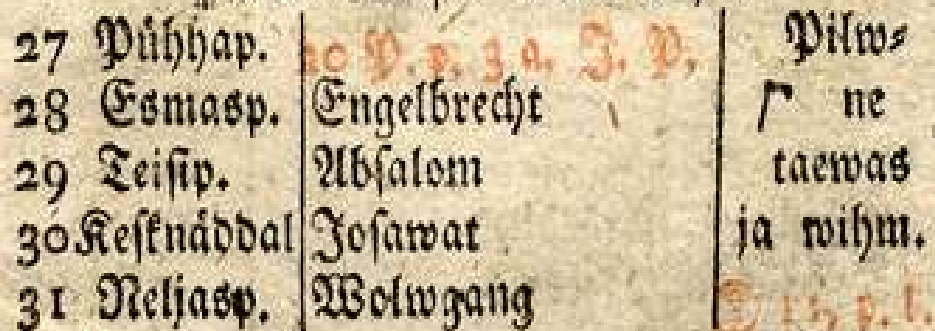 27 Pühhap. 20 P. p. 3 a. J. P. Pilw⸗
28 Esmasp. Engelbrecht ne
29 Teisip. Absalom taewas
30 Kesknäddal Josawat ja wihm.
31 Neljasp. Wolwgang p. l.